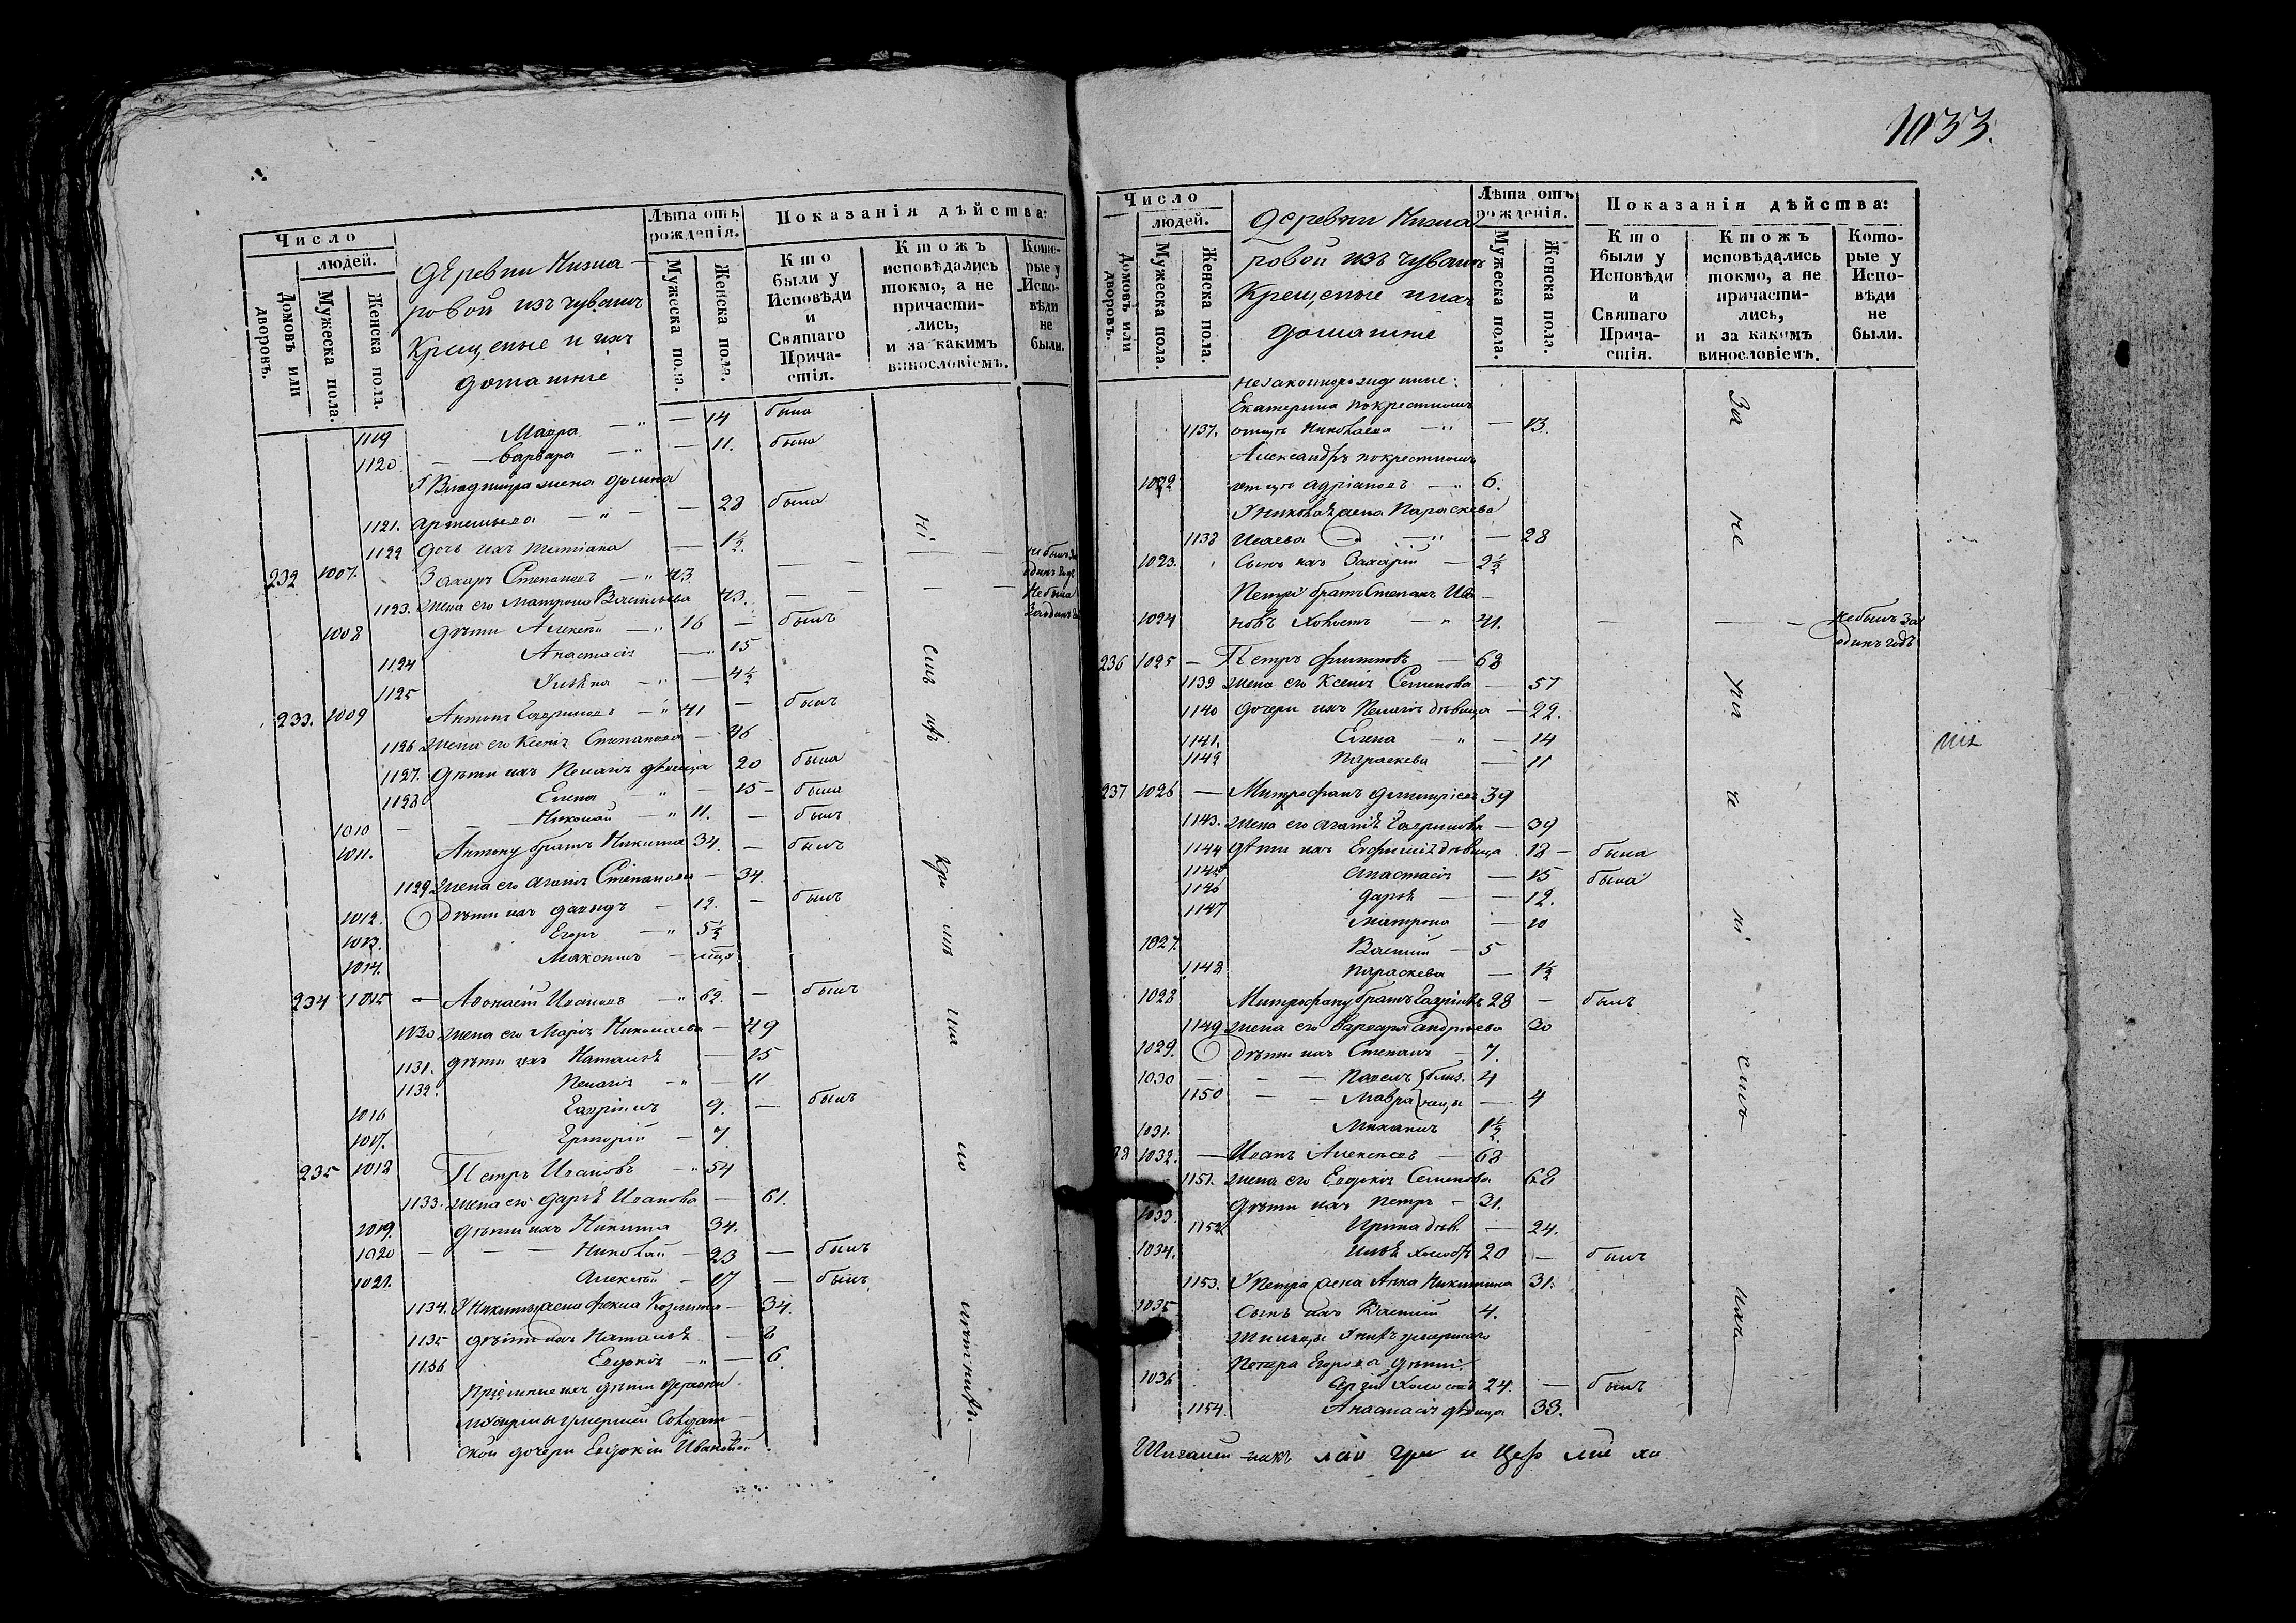 Число
людей.
Домовъ или дворовъ.
Мужеска пола.
Женска пола.
Деревни
ровой изъ чувашъ
Крещеные и ихъ
домашніе
Лѣта отъ рожденія.
Мужеска пола.
Женска пола.
Показанія дѣйства:
Кто были у Исповѣди и Святаго Причастія.
Ктожъ исповѣдались токмо, а не причастились, и за какимъ винословіемъ.
Которые у Исповѣди не были.
1119 Мавра — 14 была
1120 Варвара — 11. была
Владимира жена
1121. Артемьева — 28 была
1122 дочь ихъ Татіана — 1½.
232 1007. Захаръ Степановъ — 43.
1123. жена его Матрона Васильева 43.
1008 дѣти Алексѣй — 16 — былъ
1124 Анастасія — 15
1125 Ульяна — 4½
233. 1009 Антонъ Гавриловъ — 41 — былъ
1126 жена его Ксенія Степанова — 46
1127. дѣти ихъ Пелагія дѣвица 20 была
1128 Елена — 15 — была
1010 — Николай — 11. — былъ
1011. Антону братъ Никита 34. — былъ
1129 жена его Агафія Степанова — 34.
1012. Дѣти ихъ Давыдъ — 12. — былъ
1013. Егоръ — 5½
1014. Максимъ —
234 1015 — Аѳонасій Ивановъ — 62. — былъ
1130 жена его Марія Николаева — 49
1131. дѣти ихъ Наталія — 15
1132. Пелагія — 11
1016 Гавріилъ 9. — былъ
1017. Григорій — 7
235 1018 Петръ Ивановъ — 54
1133. жена его Дарія Иванова — 61.
1019. дѣти ихъ Никита 34.
1020 — Николай — 23 — былъ
1021. Алексѣй — 17 — былъ
1134. У Никиты жена Ѳекла Козмина — 34.
1135 дѣти ихъ Наталія — 8
1136 Евдокія — 6.
ихъ дѣти
умершей Солдат-
ской дочери Евдокіи Ивановой
1033.
Число
людей.
Домовъ или дворовъ.
Мужеска пола.
Женска пола.
Деревни
ровой изъ чувашъ
Крещеные и ихъ
домашніе
Лѣта отъ рожденія.
Мужеска пола.
Женска пола.
Показанія дѣйства:
Кто были у Исповѣди и Святаго Причастія.
Ктожъ исповѣдались токмо, а не причастились, и за какимъ винословіемъ.
Которые у Исповѣди не были.
незаконнорожденные:
Екатерина по крестному
1137. отцѣ Николаева — 13.
Александръ по крестному
1022 отцѣ Адріановъ — 6.
У Николая жена Параскева
1138 Исаева — 28
1023. Сынъ ихъ Захарій — 2½
Петру братъ Степанъ Ива-
1024 новъ Холостъ — 41. — не былъ за
одинъ годъ
236 1025 — Петръ — 68
1139 жена его Ксенія Семенова — 57
1140 дочери ихъ Пелагія дѣвица — 22.
1141. Елена — 14
1142 Параскева — 11
237 1026 — Митрофанъ Димитріевъ 39
1143. жена его Агафія Гаврилова — 39
1144 дѣти ихъ Евфимія дѣвица 18 — была
1145 Анастасія — 15 была
1146 Дарія — 12.
1147 Матрона — 10
1027. Василій — 5
1148 Параскева — 1½
1028 Митрофану братъ Гавріилъ 28 — былъ
1149 жена его Варвара Андреева 30
1029. Дѣти ихъ Степанъ — 7.
1030 — — Павелъ близ. 4
1150 — — Мавра нецы — 4
1031. Михаилъ 1½
1032. — Иванъ Алексѣевъ — 68
1151. жена его Евдокія Семенова 68
1033. дѣти ихъ Петръ — 31.
1152 Ирина дѣв. — 24.
1034. Илья холостъ 20 — былъ
1153. У Петра жена Анна Никитина 31.
1035 Сынъ ихъ Василій 4.
умершаго
Петра Егорова дѣти:
1036 Сергій Холостъ 24. — былъ
1154. Анастасія дѣвица 33.